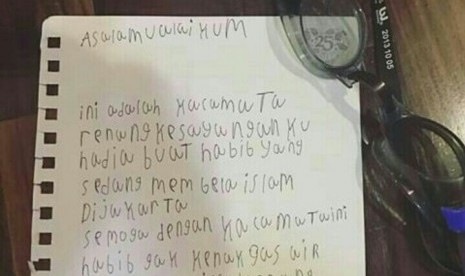 AsalamualaiKUM
ini adalah KacamaTa
renang Kesayangan Ku
hadia buat habib yang
sedang membela islam
DiJaKarTa
semoga dengan KacamaTaini
habib gak Kenak gas air
2013 10 05
25